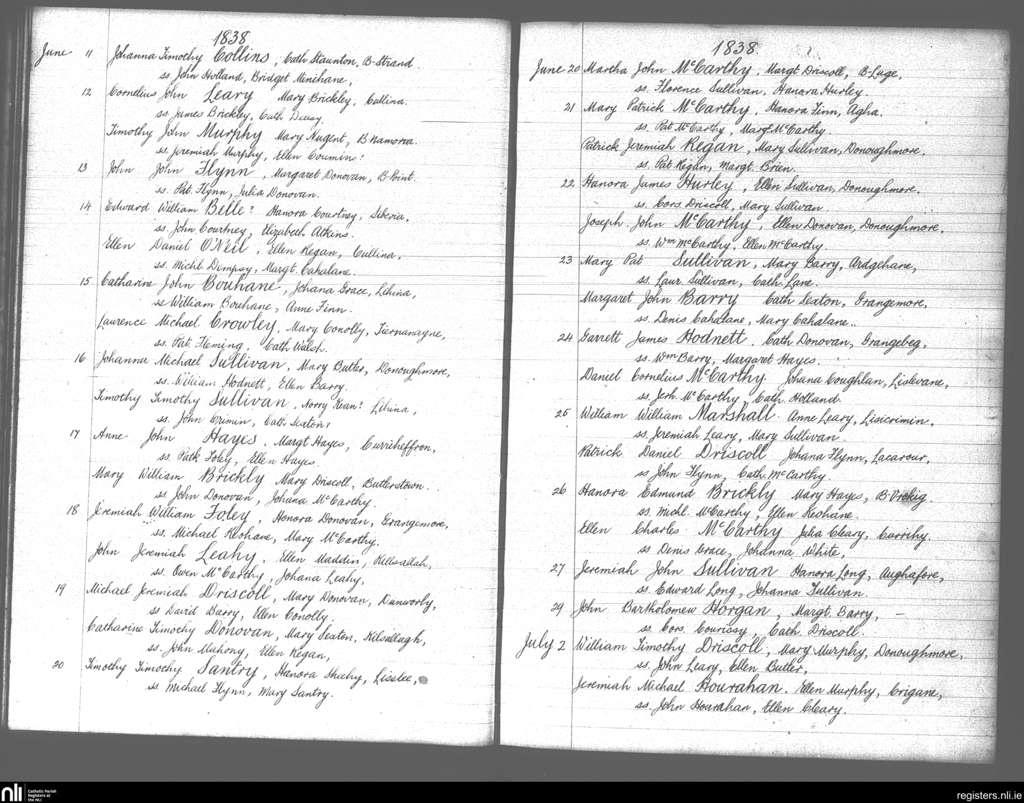 1838
June 11 Johanna Timothy Collins, Cath Staunton, B-Strand
ss John Holland, Bridget Minihane,
12 Cornelius John Leary Mary Brickley, Cullina.
ss. James Brickley, Cath
Timothy John Murphy Mary Nugent, B
ss. Jeremiah Murphy, Ellen
13 John John Flynn, Margaret Donovan, B-Point.
ss. Pat Flynn, Julia Donovan.
14 Edward William Belle? Hanora Courtney,
ss. John Courtney, Elizabeth Atkins.
Ellen Daniel O'Neil, Ellen Regan, Cullina,
ss. Michl Dempsy, Margt. Cahalane.
15 Catharine John Bouhane, Johana Grace, Lehina,
ss William Bouhane, Anne Finn.
Laurence Michael Crowley, Mary Conolly, Tiernanagne,
ss. Pat Fleming, Cath Walsh.
16 Johanna Michael Sullivan, Mary Butler, Donoughmore,
ss. William Hodnett, Ellen Barry.
Timothy Timothy Sullivan, Norry Kean? Lehina,
ss. John Crimin, Cath Sexton?
17 Anne John Hayes, Margt Hayes, Currieheffron,
ss. Patk Foley, Ellen Hayes.
Mary William Brickly Mary Driscoll, Butlerstown.
ss John Donovan, Johana McCarthy.
18 Jeremiah William Foley, Honora Donovan, Grangemore,
ss. Michael Keohane, Mary McCarthy.
John Jeremiah Leahy, Ellen Maddin, Kilsadah,
ss. Owen McCarthy, Johana Leahy,
19 Michael Jeremiah Driscoll, Mary Donovan, Dunworly,
ss David Barry, Ellen Conolly.
Catharine Timothy Donovan, Mary Sexton, Kilsallagh,
ss. John Muhony, Ellen Regan,
20 Timothy Timothy Santry, Hanora Shuhy, Lisslee,
ss Michael Flynn, Mary Santry.
1838
June 20 Martha John McCarthy, Margt Driscoll, B-Luge,
ss. Florence Sullivan, Hanora Hurley.
21 Mary Patrick McCarthy, Hanora Finn, Agha.
ss. Pat McCarthy, Margt McCarthy.
Patrick Jeremiah Regan, Mary Sullivan, Donoughmore,
ss. Pat Regan, Margt. Brien.
22 Hanora James Hurley, Ellen Sullivan, Donoughmore.
ss. Cors Driscoll, Mary Sullivan.
Joseph John McCarthy, Ellen Donovan, Donoughmore,
ss. Wm McCarthy, Ellen McCarthy.
23 Mary Pat Sullivan, Mary Barry, Ardgehane,
ss. Laur Sullivan, Cath Lane.
Margaret John Barry Cath Sexton, Grangemore,
ss. Denis Cahalane, Mary Cahalane..
24 Garrett James Hodnett, Cath Donovan, Grangebeg,
ss. Wm Barry, Margaret Hayes.
Daniel Cornelius McCarthy Johana Coughlan, Lislevane,
ss. Jerh McCarthy, Cath Holland.
25 William William Marshall Anne Leary, Lisicrimin,
ss. Jeremiah Leary, Mary Sullivan.
Patrick Daniel Driscoll Johana Flynn, Lacarour,
ss John Flynn, Cath McCarthy
26 Hanora Edmund Brickly Mary Hayes,
ss. Michl. McCarthy, Ellen Keohane.
Ellen Charles McCarthy Julia Cleary, Carrihy.
ss Denis Grace, Johanna White,
27 Jeremiah John Sullivan Hanora Long, Aughafore,
ss. Edward Long, Johanna Sullivan.
29 John Bartholomew Horgan, Margt Barry, —
ss. Cors. Courissy, Cath. Driscoll.
July 2 William Timothy Driscoll, Mary Murphy, Donoughmore,
ss. John Leary, Ellen Butler,
Jeremiah Michael Hourahan, Ellen Murphy, Crigane,
ss. John Hourahan, Ellen Cleary.
nli Catholic Parish Registers at the NLI
registers.nli.ie